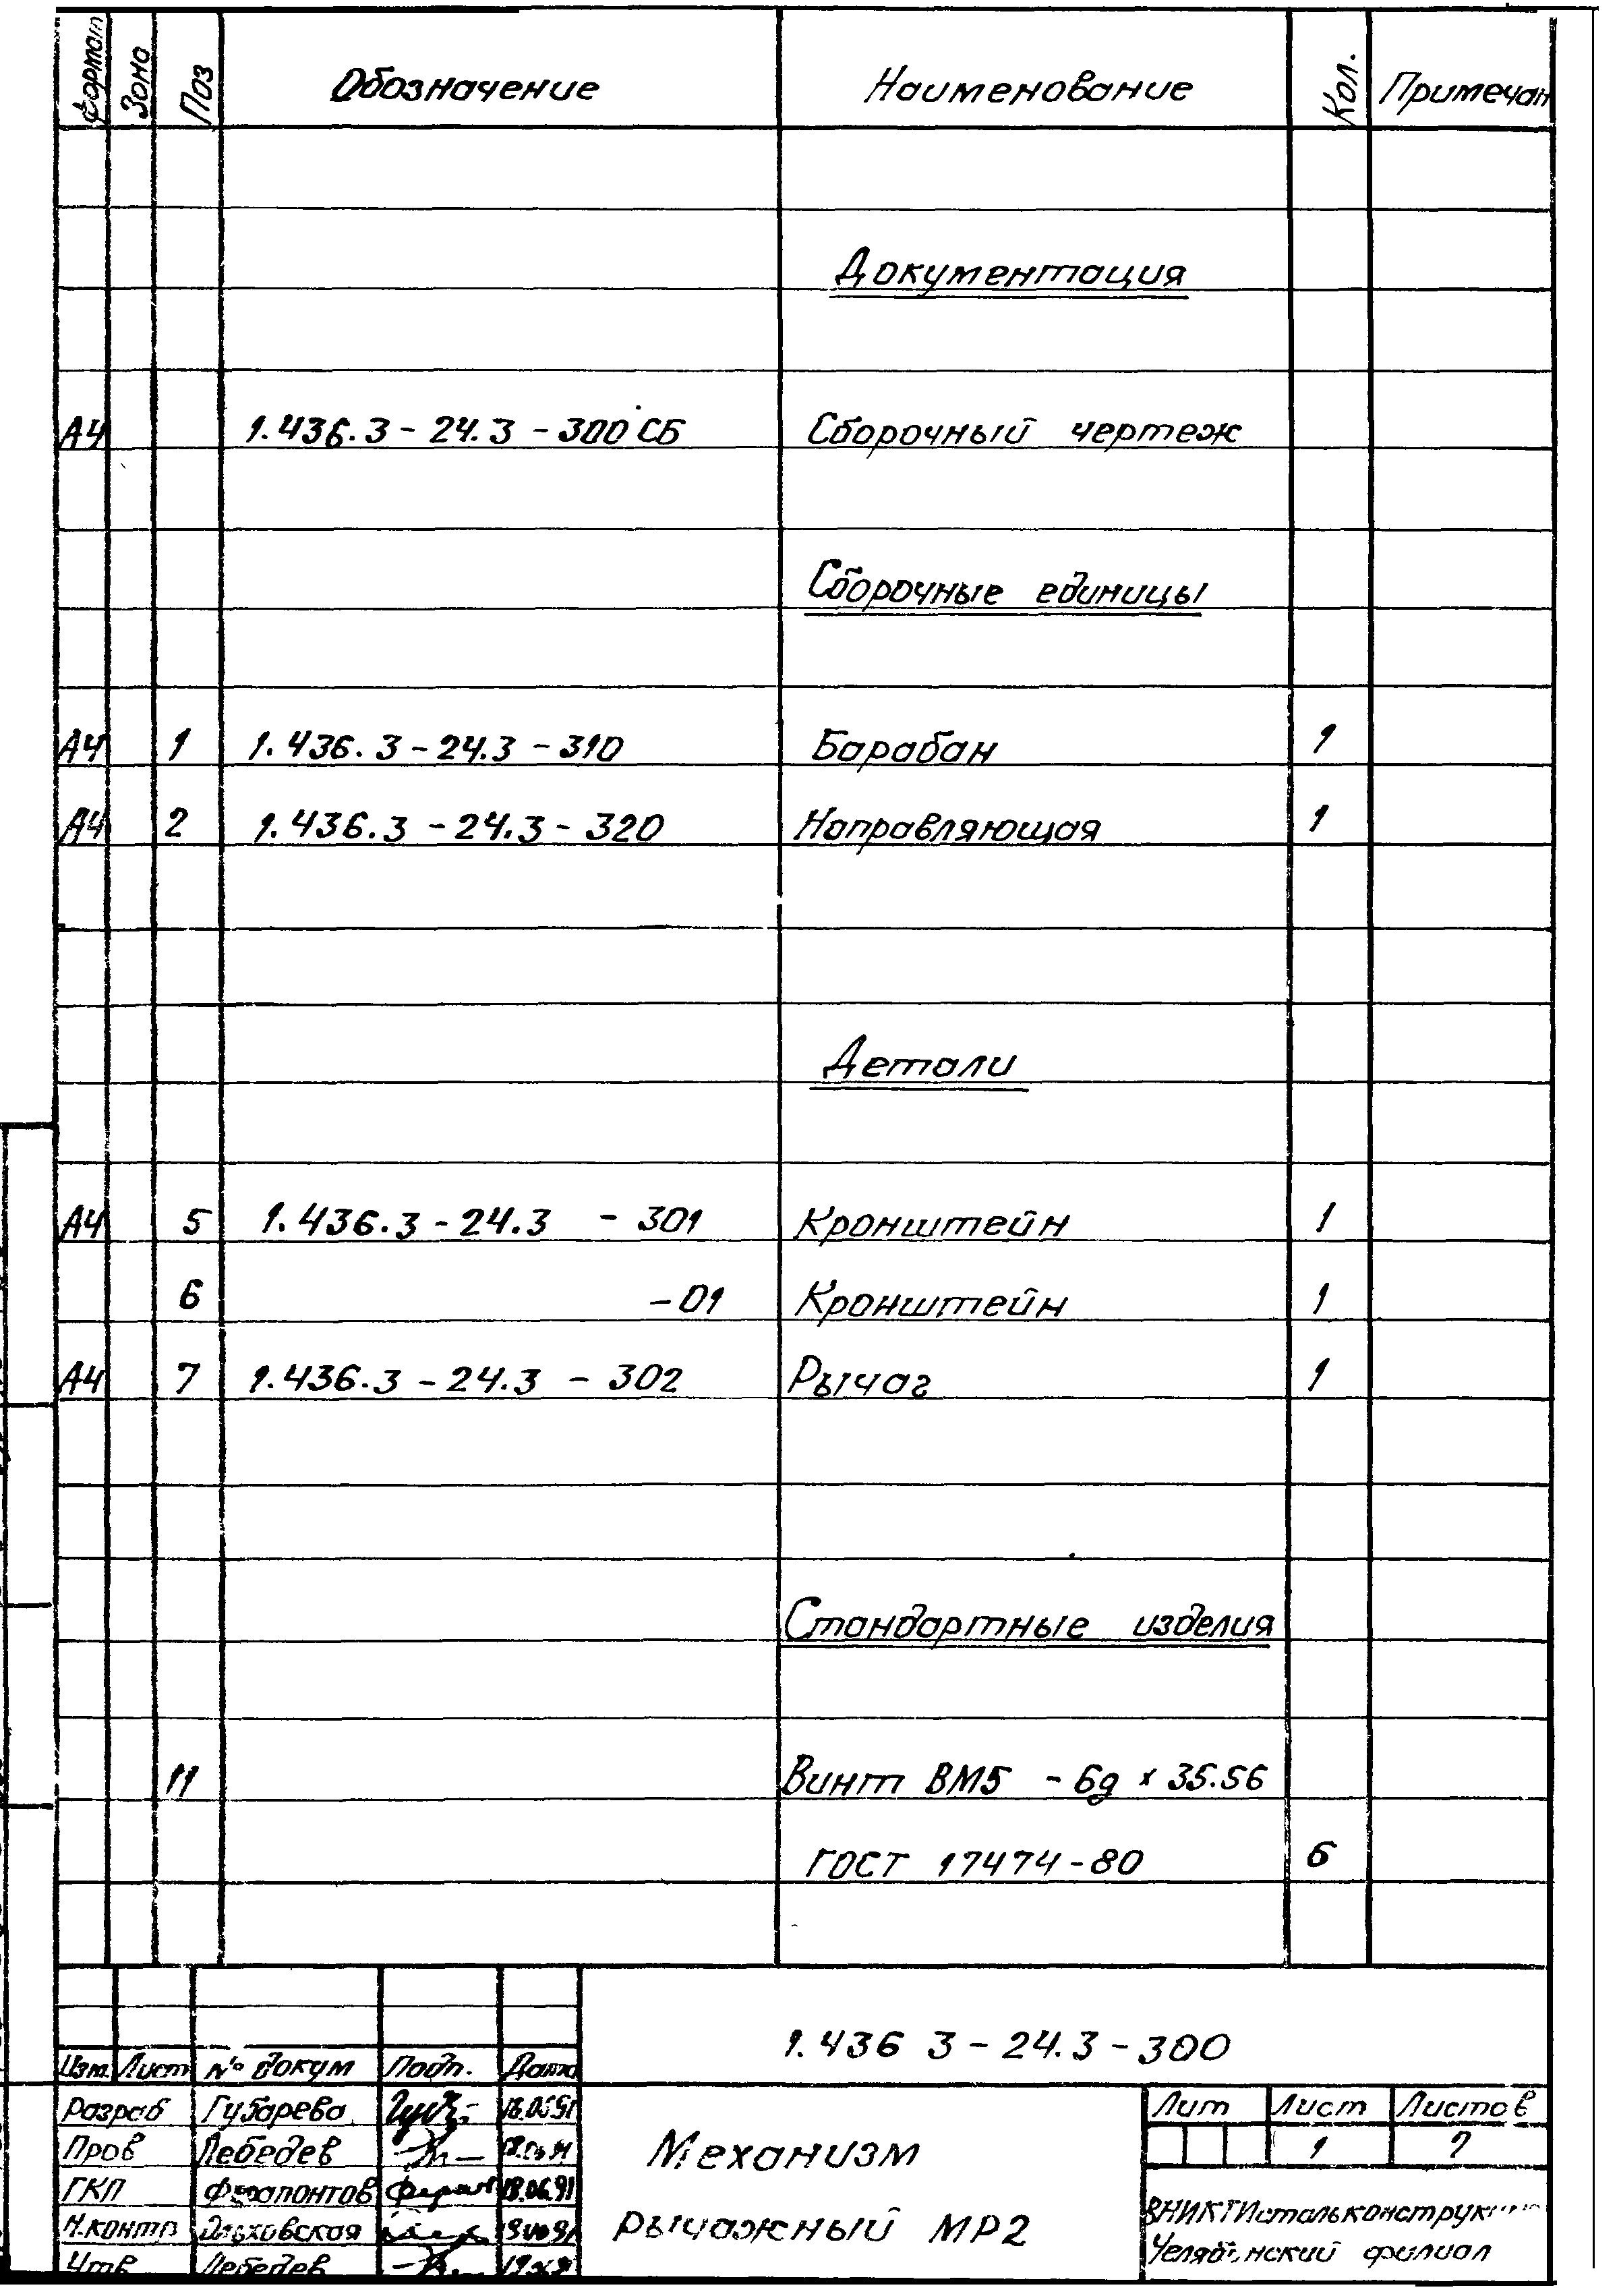 Формат Зона Поз Обозначение Наименование Кол. Примечан
Документация
А4 1.436.3-24.3-300 СБ Сборочный чертеж
Сборочные единицы
А4 1 1.436.3-24.3-310 Барабан 1
А4 2 1.436.3-24.3-320 Направляющая 1
Детали
А4 5 1.436.3-24.3 -301 Кронштейн 1
6 -01 Кронштейн 1
А4 7 1.436.3-24.3 -302 Рычаг 1
Стандартные изделия
11 Винт ВМ5 -6g х 35.56
ГОСТ 17474-80 6
1.436 3-24.3-300
Изм. Лист № докум Подп. Дата
Разраб Губарева
Пров Лебедев
ГКП Ферапонтов 18.06.91
Н.контр
Утв Лебедев
Механизм
рычажный МР2
Лит Лист Листов
1
Филиал